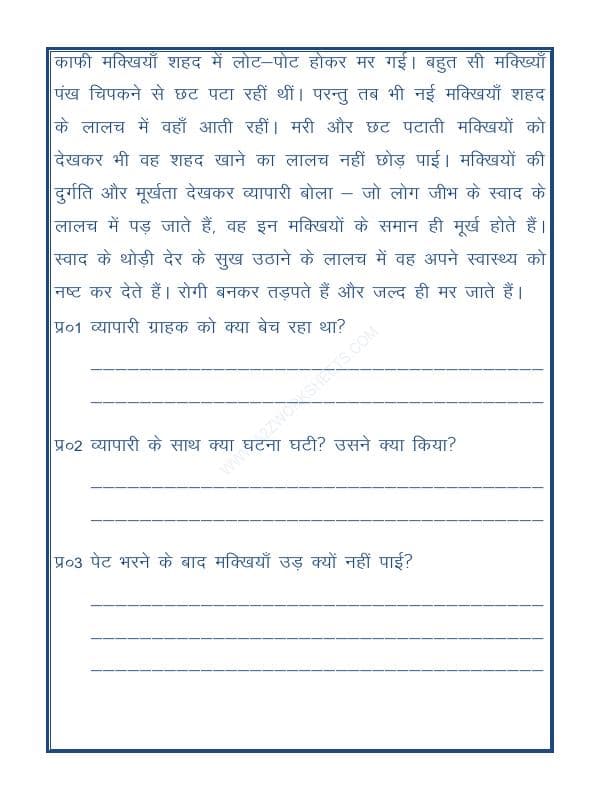 काफी मक्खियाँ शहद में लोट–पोट होकर मर गई। बहुत सी मक्ख्यिाँ
पंख चिपकने से छट पटा रहीं थीं। परन्तु तब भी नई मक्खियाँ शहद
के लालच में वहाँ आती रहीं। मरी और छट पटाती मक्खियों को
देखकर भी वह शहद खाने का लालच नहीं छोड़ पाई। मक्खियों की
दुर्गति और मूर्खता देखकर व्यापारी बोला – जो लोग जीभ के स्वाद के
लालच में पड़ जाते हैं, वह इन मक्खियों के समान ही मूर्ख होते हैं।
स्वाद के थोड़ी देर के सुख उठाने के लालच में वह अपने स्वास्थ्य को
नष्ट कर देते हैं। रोगी बनकर तड़पते हैं और जल्द ही मर जाते हैं।
प्र०1 व्यापारी ग्राहक को क्या बेच रहा था?
प्र०2 व्यापारी के साथ क्या घटना घटी? उसने क्या किया?
प्र०3 पेट भरने के बाद मक्खियाँ उड़ क्यों नहीं पाई?
WWW.A2ZWORKSHEETS.COM